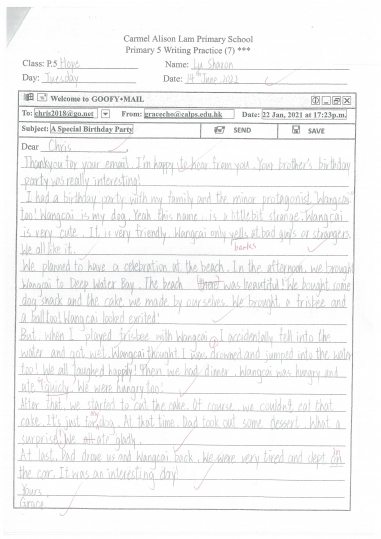 Carmel Alison Lam Primary School
Primary 5 Writing Practice (7) ***
Class: P.5 Hope Name: Lu Sharon
Day: Tuesday Date: 14th June, 2022
Welcome to GOOFY•MAIL
To: chris2018@go.net From: graceecho@calps.edu.hk Date: 22 Jan, 2021 at 17:23p.m.
Subject: A Special Birthday Party SEND SAVE
Dear Chris,
Thankyou for your email. I'm happy to hear from you. Your brother's birthday
party was really interesting!
I had a birthday party with my family and the minor protagonist, Wangcai
too! Wangcai is my dog. Yeah this name is a little bit strange. Wangcai
is very cute. It is very friendly. Wangcai only yells at bad guys or strangers.
barks
We all like it.
We planned to have a celebration at the beach. In the afternoon, we brought
Wangcai to Deep Water Bay. The beach was beautiful! We bought some
dog snack and the cake we made by ourselves. We brought a frisbee and
a ball too! Wangcai looked excited!
But, when I played frisbee with Wangcai, I accidentally fell into the
water and got wet. Wangcai thought I was drowned and jumped into the water
too! We all laughed happily! Then we had dinner. Wangcai was hungry and
ate quickly. We were hungry too!
After that, we started to cut the cake. Of course, we couldn't eat that
cake. It's just for dog. At that time, Dad took out some dessert. What a
surprise! We ate gladly.
At last, Dad drove us and Wangcai back. We were very tired and slept on
the car. It was an interesting day!
Yours,
Grace